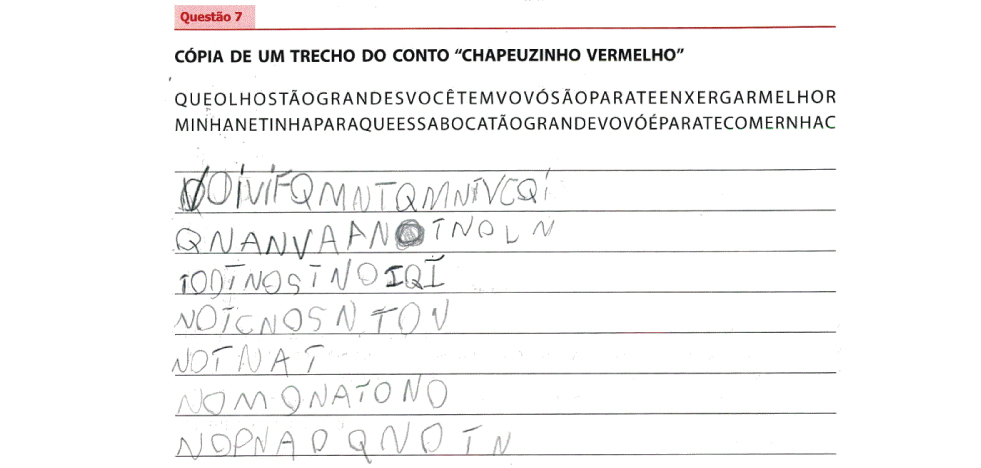 Questão 7
CÓPIA DE UM TRECHO DO CONTO “CHAPEUZINHO VERMELHO”
QUEOLHOSTÃOGRANDESVOCÊTEMVOVÓSÃOPARATEENXERGARMELHOR
MINHANETINHAPARAQUEESSABOCATÃOGRANDEVOVÓÉPARATECOMERNHAC
OIVIFQMNTQMNIVCQI
QNANVAAN TNOLN
IODINOSTNOIQI
NOICNOSNTON
NOTNAT
NOMONATONO
NOPNAOQNOTN